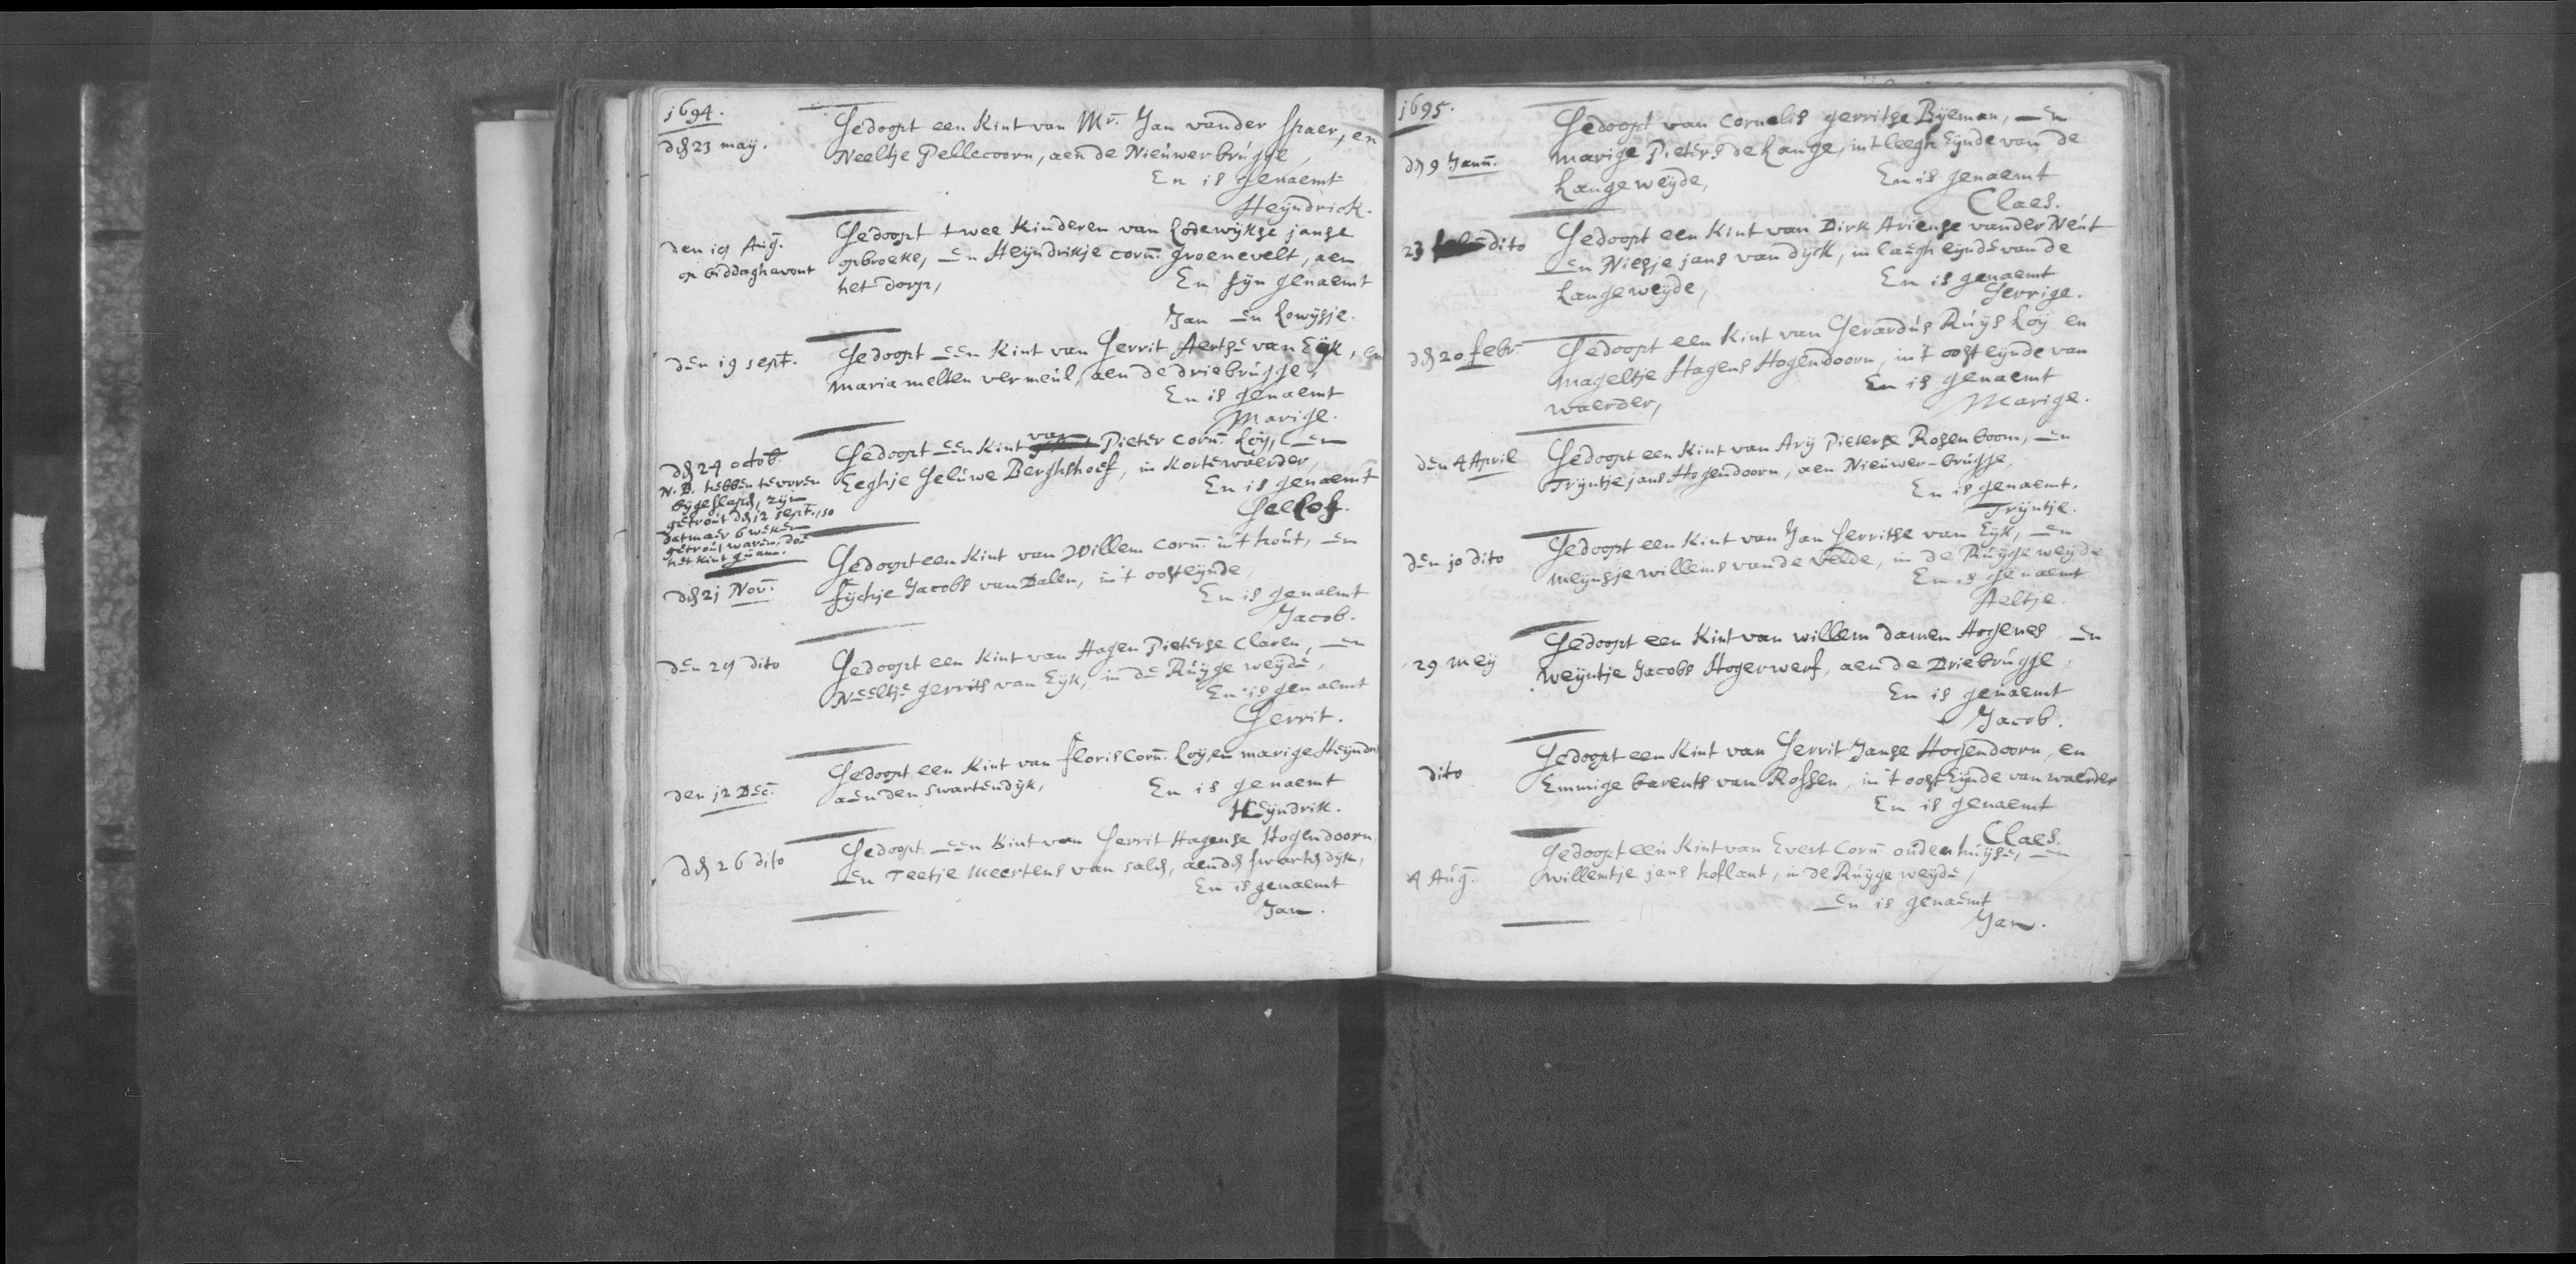 1694.
den 23 may.
Gedoopt een Kint van Mr. Jan vander Spaer, en
Neeltje Pellecoorn, aen de Nieuwerbrugge,
En is genaemt
Heyndrick.
den 19 Aug.
op biddagh avont
Gedoopt twee Kinderen van Lodewykse janse
opbroeke, en Heyndrikje corn. groenevelt, aen
het dorp,
En syn genaemt
Jan en Lowysje.
den 19 sept.
Gedoopt een Kint van Gerrit Aertse van Eyk, en
maria melten vermeul, aen de driebrugge,
En is genaemt
Marige.
den 24 octob.
N.B. hebben te voren
bygeslapen, zyn
getrout den 12 sept., so
datmaer 6 weken
getrout waren, doe
het kint quam.
Gedoopt een Kint van Pieter corn. Loy, en
Eeghje Geluwe Berghshoef, in Kortewaerder,
En is genaemt
Geelof.
den 21 Nov.
Gedoopt een Kint van Willem corn. in't hout, en
Fychje Jacobs van Dalen, in't oosteynde,
En is genaemt
Jacob.
den 29 dito
Gedoopt een Kint van Hagen Pieterse Claren, en
Neeltje gerrits van Eyk, in de Ruyge weyde,
En is genaemt
Gerrit.
den 12 Dec.
Gedoopt een Kint van Floris Corn. Loy, en marige Heyndr
aen den swartendyk,
En is genaemt
Heyndrik.
den 26 dito
Gedoopt een Kint van Gerrit Hagense Hogendoorn,
en Teetje Meertens van Salen, aenden swarten dyk,
En is genaemt
Jan.
1695.
den 9 Janu.
Gedoopt van Cornelis gerritse Byeman, en
marige Pieters de Lange, int leegh Eynde van de
Langeweyde,
En is genaemt
Claes.
23 dito
Gedoopt een Kint van Dirk Ariense vander Neut
en Niesje jans van dyck, in laegh eynde van de
Langeweyde,
En is genaemt
Gerrige.
den 20 febr.
Gedoopt een Kint van Gerardus Ruys Loy en
Mageltje Hagens Hogendoorn, in't oosteynde van
waerder,
En is genaemt
Marige.
den 4 April
Gedoopt een Kint van Ary Pieterse Rosenboom, en
Tryntje jans Hogendoorn, aen Nieuwer-brugge,
En is genaemt.
Tryntje.
den 10 dito
Gedoopt een Kint van Jan Gerritse van Eyk, en
Meynsje willems vande velde, in de Ruyge weyde
En is genaemt
Aeltje.
29 Mey
Gedoopt een Kint van willem Damen Hogenes en
weyntje Jacobs Hogerwerf, aen de Driebrugge,
En is genaemt
Jacob.
dito
Gedoopt een Kint van Gerrit Janse Hogendoorn, en
Emmige barents van Rossen, in't oost Eynde van waerder
En is genaemt
Claes.
4 Aug.
Gedoopt een Kint van Evert Corn. oudenhuyse, en
willemtje jans hoflant, in de Ruyge weyde,
en is genaemt
Jan.